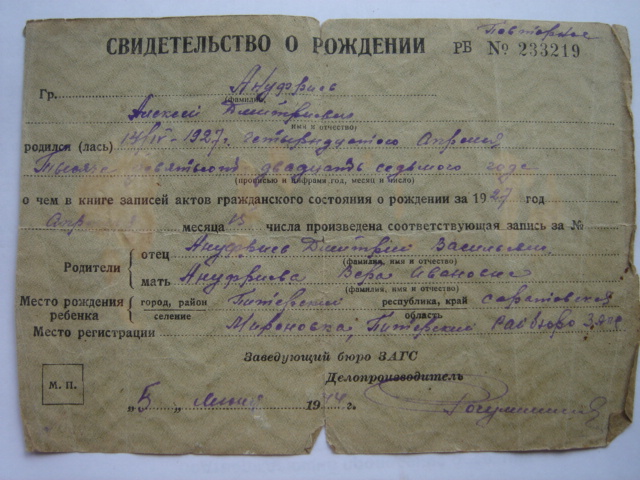 Повторное
СВИДЕТЕЛЬСТВО О РОЖДЕНИИ РБ № 233219
Гр. Ануфриев
(фамилия)
Алексей Дмитриевич
имя и отчество)
родился (лась) 14/IV - 1927 г. четырнадцатого Апреля
Тысяча девятьсот двадцать седьмого года
(прописью и цифрами год, месяц и число)
о чем в книге записей актов гражданского состояния о рождении за 1927 год
Апреля месяца 15 числа произведена соответствующая запись за №
Родители
отец Ануфриев Дмитрий Васильевич
(фамилия, имя и отчество)
мать Ануфриева Вера Ивановна
(фамилия, имя и отчество)
Место рождения ребенка
город, район Питерский республика, край Саратовская
селение область
Место регистрации Мироновка, Питерский
Заведующий бюро ЗАГС
Делопроизводитель
М. П.
„5„ 1944 г.